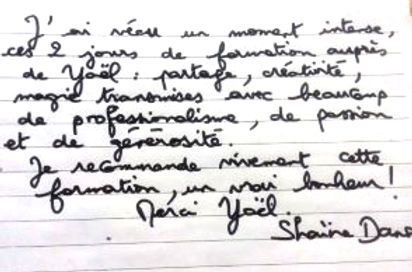 J'ai vécu un moment intense,
ces 2 jours de formation auprès
de Yaël : partage, créativité,
magie transmises avec beaucoup
de professionalisme, de passion
et de générosité.
Je recommande vivement cette
formation, un vrai bonheur !
Merci Yaël.
Shaïne Dans